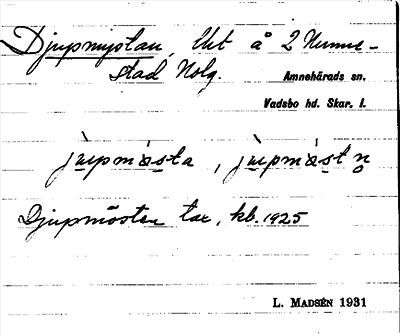 Djupmystan, Utt å 2 Numme-
stad Nolg.
Amnehärads sn.
Vadsbo hd. Skar. l.
jùpmòsta, jùpmòstn̥
Djupmosten tax, kb. 1925
L. MADSÉN 1931